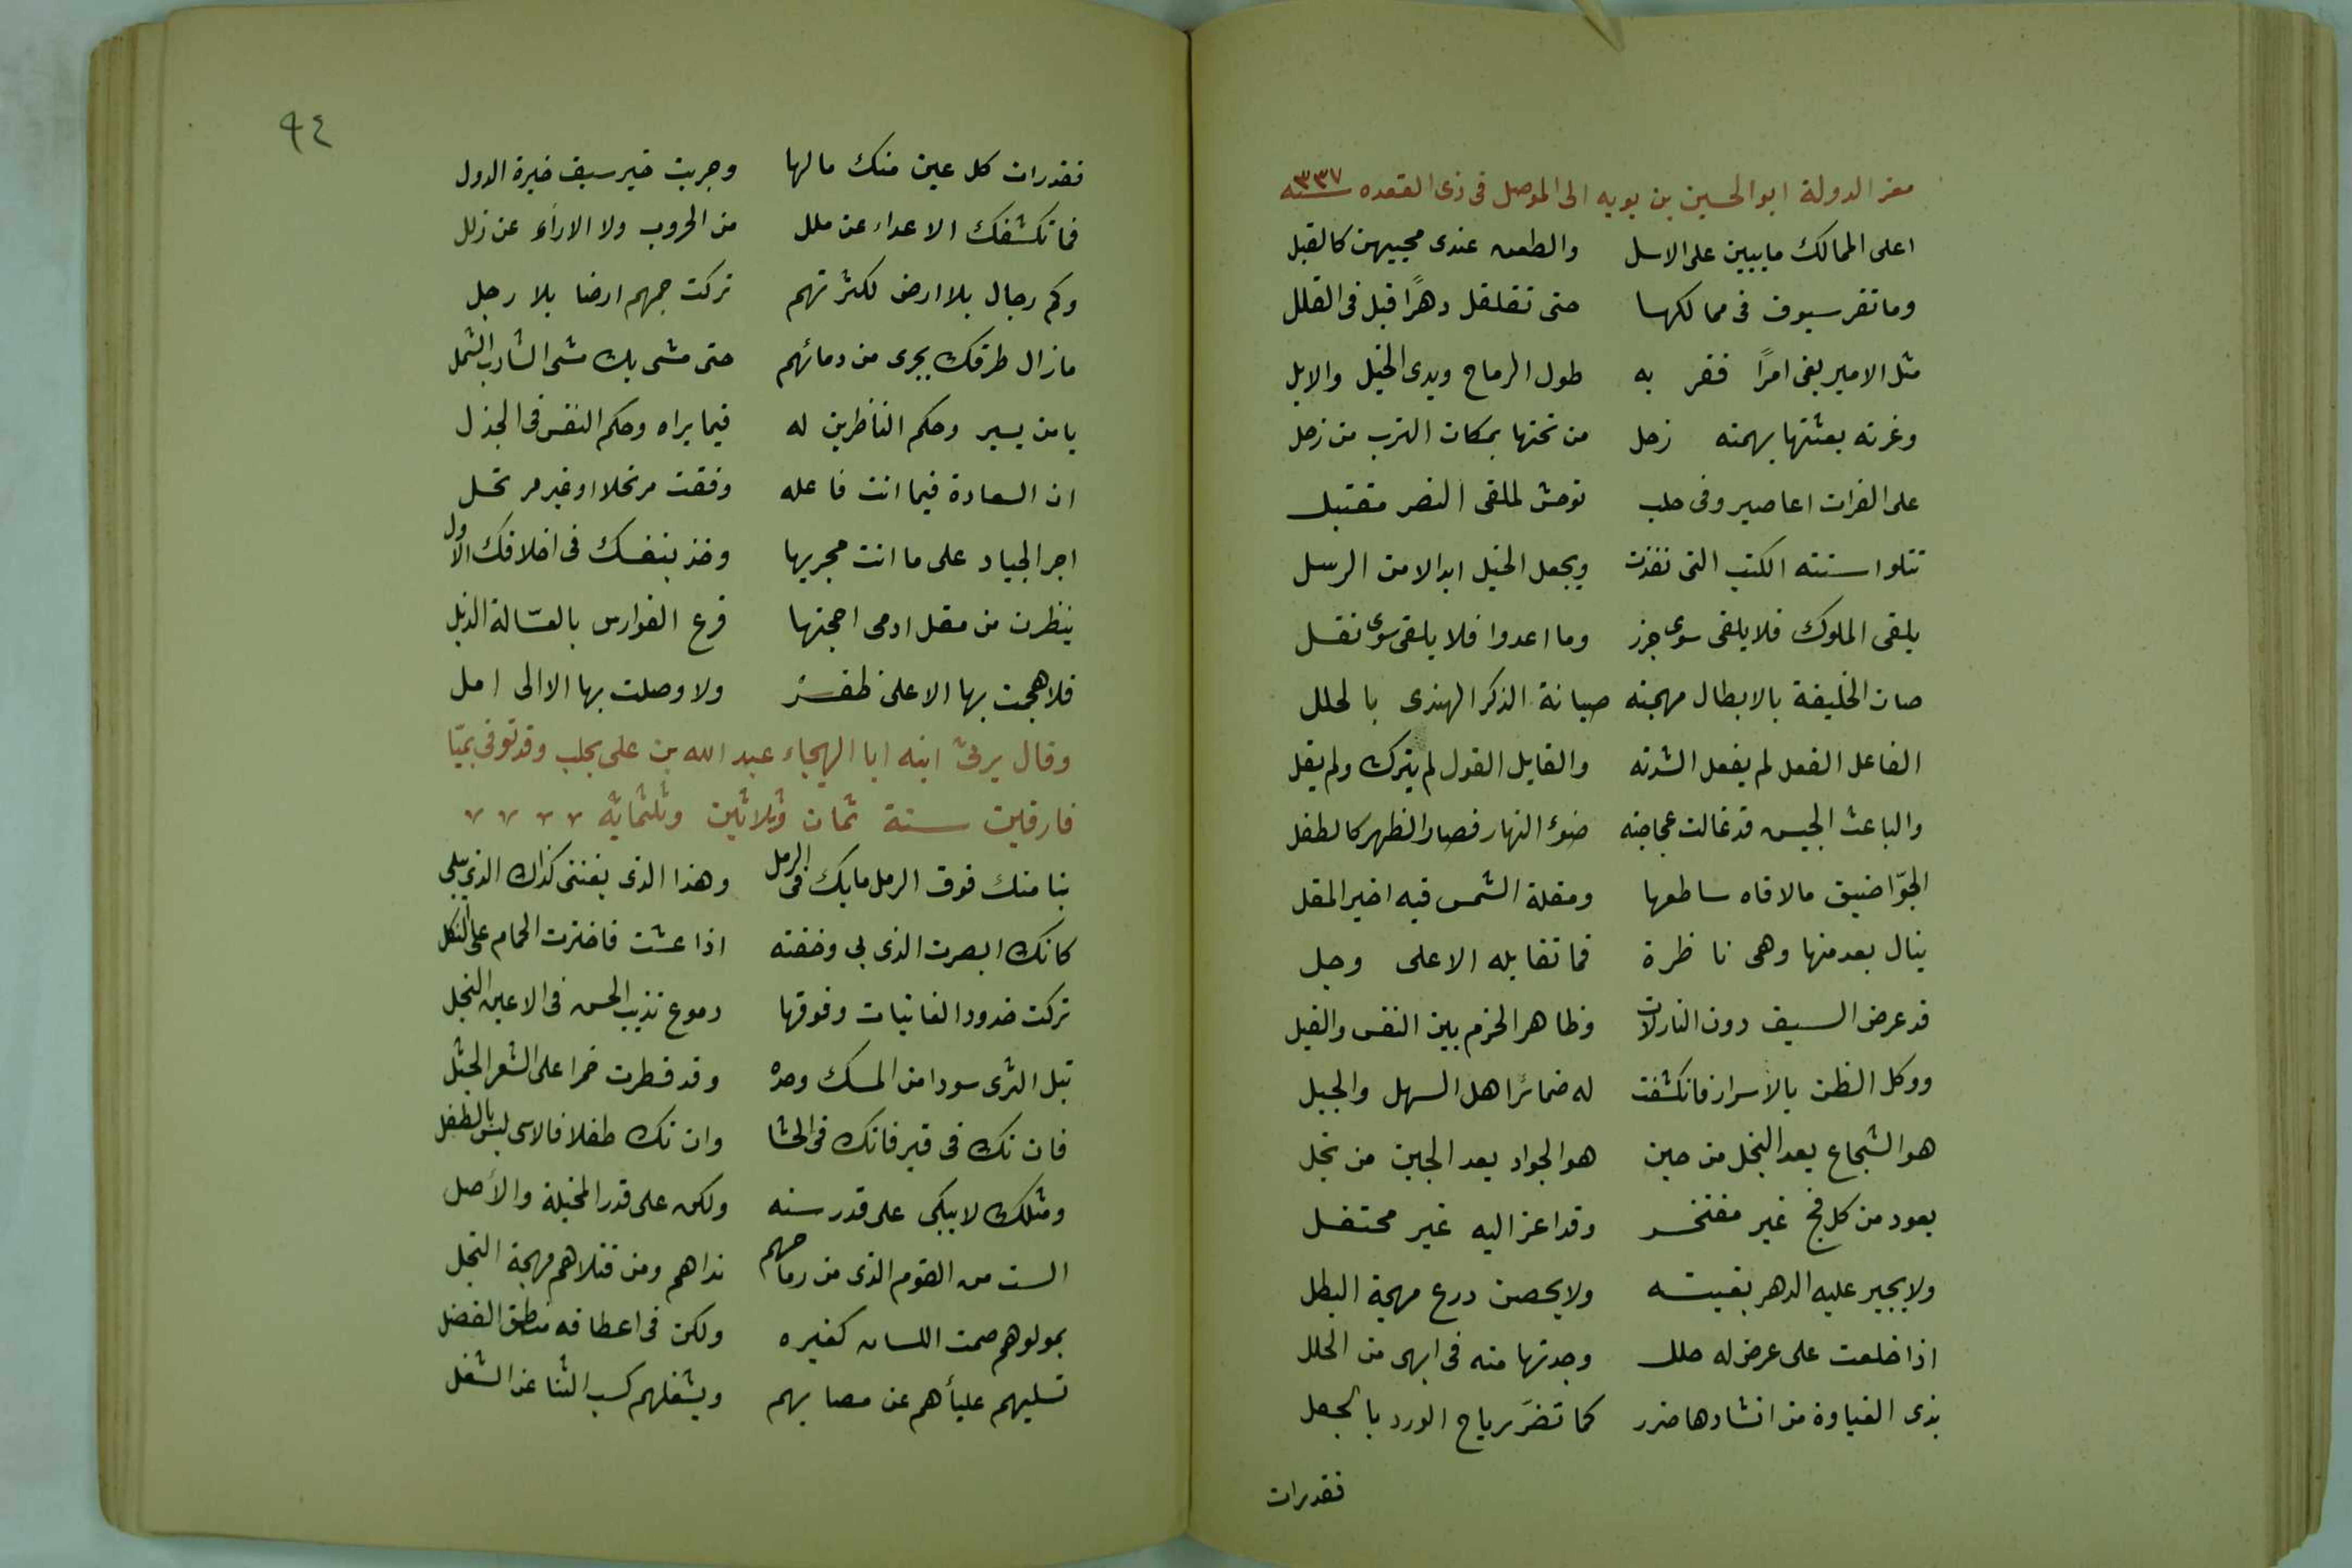 معز الدولة ابو الحسين بن بويه الى الموصل فى ذى القعده سنه ٣٣٧
اعلى الممالك مايبين على الاسل والطعن عندى محبيهن كالقبل
وماتقر سيوف فى ممالكها حتى تقلقل دهرًا قبل فى القلل
مثل الامير بغى امرًا فقر به طول الرماح ويدى الخيل والابل
وغرته بعثتها بهمته زحل من تحتها بمكان الترب من زحل
على الفرات اعاصير وفى حلب توحش لملقى النصر مقتبل
تتلوا سنته الكتب التى نفذت ويجعل الخيل ابدالا من الرسل
يلقى الملوك فلا يلقى سوى جزر وما اعدوا فلا يلقى سوى نفل
صان الخليفة بالابطال مهجته صيانة الذكر الهندى بالحلل
الفاعل الفعل لم يفعل لشدته والقايل القول لم يترك ولم يقل
والباعث الجيس قد غالت عجاجته ضوء النهار فصار الظهر كالطفل
الجوّ اضيق مالاقاه ساطعها ومقلة الشمس فيه اخير المقل
ينال بعد منها وهى ناظرة فما تقابله الا على وجل
قد عرض السيف دون النازلات وظاهر الحزم بين النفس والغيل
ووكل الظن بالاسرار فانكشفت له ضمائر اهل السهل والجبل
هو الشجاع يعد البخل من جبن هو الجواد يعد الجبن من بخل
يعود من كل فج غير مفتخر وقد اعز اليه غير محتفل
ولا يجير عليه الدهر بقيته ولا يحصن درع مهجة البطل
اذا خلعت على عرض له حلل وجدتها منه فى ابهى من الحلل
بذى الغباوة من انشادها ضرر كما تضرّ رياح الورد بالجعل
فقدرات
٩٤
فقدرات كل عين منك مالها وجربت خير سيف خيرة الدول
فما تكشفك الاعداء عن ملل من الحروب ولا الاراء عن زلل
وكم رجال بلا ارض لكثرتهم تركت جمهم ارضا بلا رجل
مازال طرفك يجرى من دمائهم حتى مشى بك مشى الشارب الثمل
يامن يسير وحكم الناظرين له فيما يراه وحكم النفس فى الجذل
ان السعادة فيما انت فاعله وفقت مرتحلا او غير مرتحل
اجر الجياد على ما انت مجريها وخذ بنفسك فى اخلاقك الاول
ينظرن من مقل ادمى احجتها قرع الفوارس بالعسّالة الذبل
فلا هجمت بها الا على ظفر ولا وصلت بها الا الى امل
وقال يرثى ابنه ابا الهيجاء عبد الله بن على بحلب وقد توفى بميّا
فارقين سنة ثمان وثلاثين وثلثماية
بنا منك فوق الرمل مابك فى الرمل وهذا الذى يفنى كذاك الذى يبلى
كانك ابصرت الذى بى وخفته اذا عشت فاخترت الحمام على الثكل
تركت خدود الغانيات وفوقها دموع تذيب الحسن فى الاعين النجل
تبل الثرى سودا من المسك وحده وقد قطرت حمرا على الشعر الجثل
فان تك فى قبر فانك فى الحشا وان تك طفلا فالاسى ليس بالطفل
ومثلك لا يبكى على قدر سنه ولكن على قدر المخيلة والأصل
الست من القوم الذى من رماحهم نداهم ومن قتلاهم مهجة البخل
بمولوهم صمت اللسان كغيره ولكن فى اعطافه منطق الفضل
تسليهم علياؑهم عن مصابهم ويشغلهم كسب الثنا عن الشغل